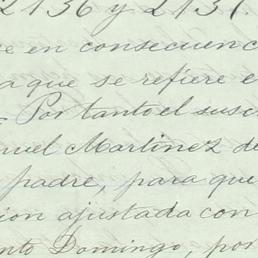 2136 y 2137.
e en consecuenc
a que se refiere e
Por tanto el susc
uel Martinez de
padre, para que
ion ajustada con
nto Domingo, por